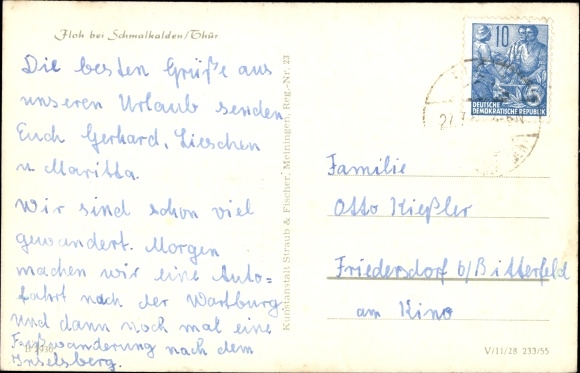 Floh bei Schmalkalden/Thür
Die besten Grüße aus
unseren Urlaub senden
Euch Gerhard, Lieschen
u Maritta.
Wir sind schon viel
gewandert. Morgen
machen wir eine Auto=
fahrt nach der Wartburg
und dann noch mal eine
Fußwanderung nach dem
Inselsberg.
Kunstanstalt Straub & Fischer, Meiningen, Reg.-Nr. 23
10
5
DEUTSCHE
DEMOKRATISCHE REPUBLIK
Familie
Otto Kießler
Friedersdorf b/Bitterfeld
am Kino
V/11/28 233/55